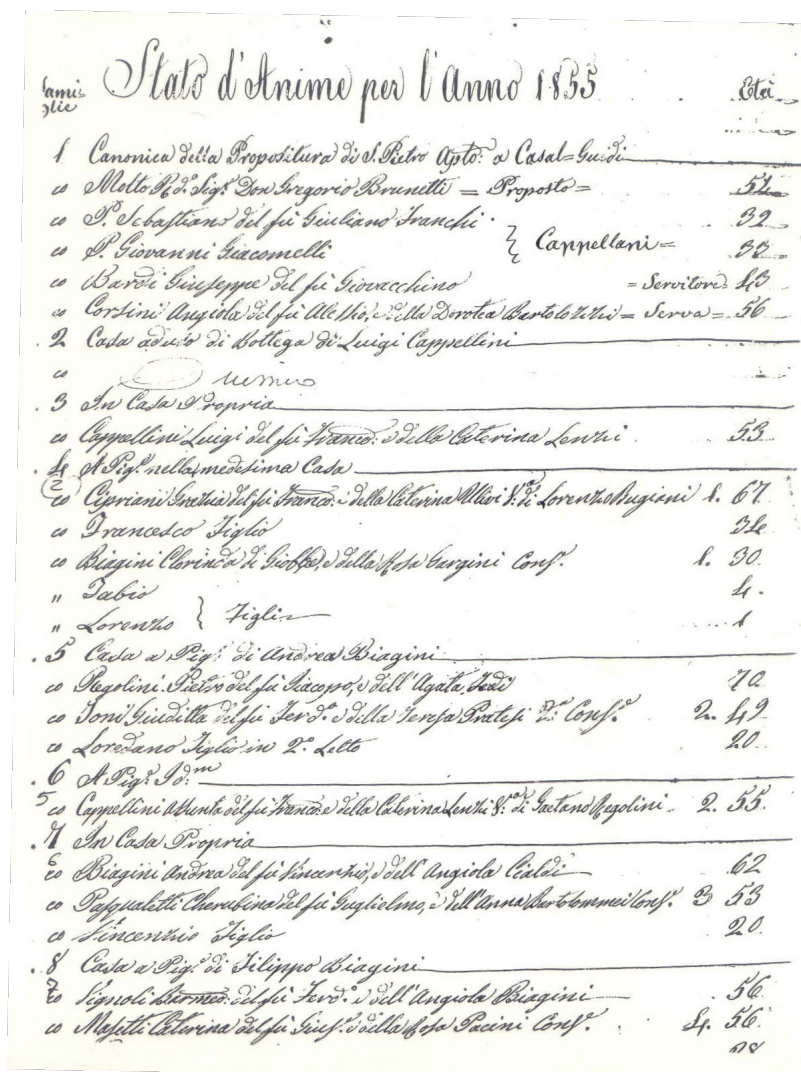 Stato d'Anime per l'Anno 1855
Fami=
glie
Età
1 Canonica della Propositura di S. Pietro Apto: a Casal=Guidi
co Molto R.do Sig.r Don Gregorio Brunetti = Proposto =
co P. Sebastiano del fù Giuliano Franchi 32
co P. Giovanni Giacomelli } Cappellani = 33
co Bardi Giuseppe del fù Giovacchino = Servitore= 43
co Corsini Angiola del fù Alessio, e della Dorotea Bartolozzi = Serva = 56
2 Casa ad uso di Bottega di Luigi Cappellini
co
3 In Casa Propria
co Cappellini Luigi del fù Franco: e della Caterina Lenzi 53
4 A Pig.e nella medesima Casa
(2)
co Cipriani Grazia del fù Franco: e della Caterina Ulivi V.a di Lorenzo Bugiani 1. 67
co Francesco Figlio 34
co Biagini Clorinda di Giobbe, e della Rosa Gargini Cons.e 1. 30
" Fabio 4
" Lorenzo } Figli 1
5 Casa a Pig.e di Andrea Biagini
co Regolini Pietro del fù Iacopo, e dell'Agata Fedi 70
co Toni Giuditta del fù Ferd.o e della Teresa Pratesi 2.a Cons.e 2. 49
co Loredano Figlio in 2.o Letto 20
6 A Pig.e Id.m
5 co Cappellini Assunta del fù Franco: e della Caterina Lenzi V.a di Gaetano Regolini 2. 55
7 In Casa Propria
6 co Biagini Andrea del fù Vincenzio, e dell'Angiola Cialdi 62
co Pasqualetti Cherubina del fù Guglielmo, e dell'Anna Bartolommei Cons.e 3 53
co Vincenzio Figlio 20
8 Casa a Pig.e di Filippo Biagini
7 co Vignoli del fù Ferd.o e dell'Angiola Biagini 56
co Masetti Caterina del fù Gius.e e della Rosa Pacini Cons.e 4. 56